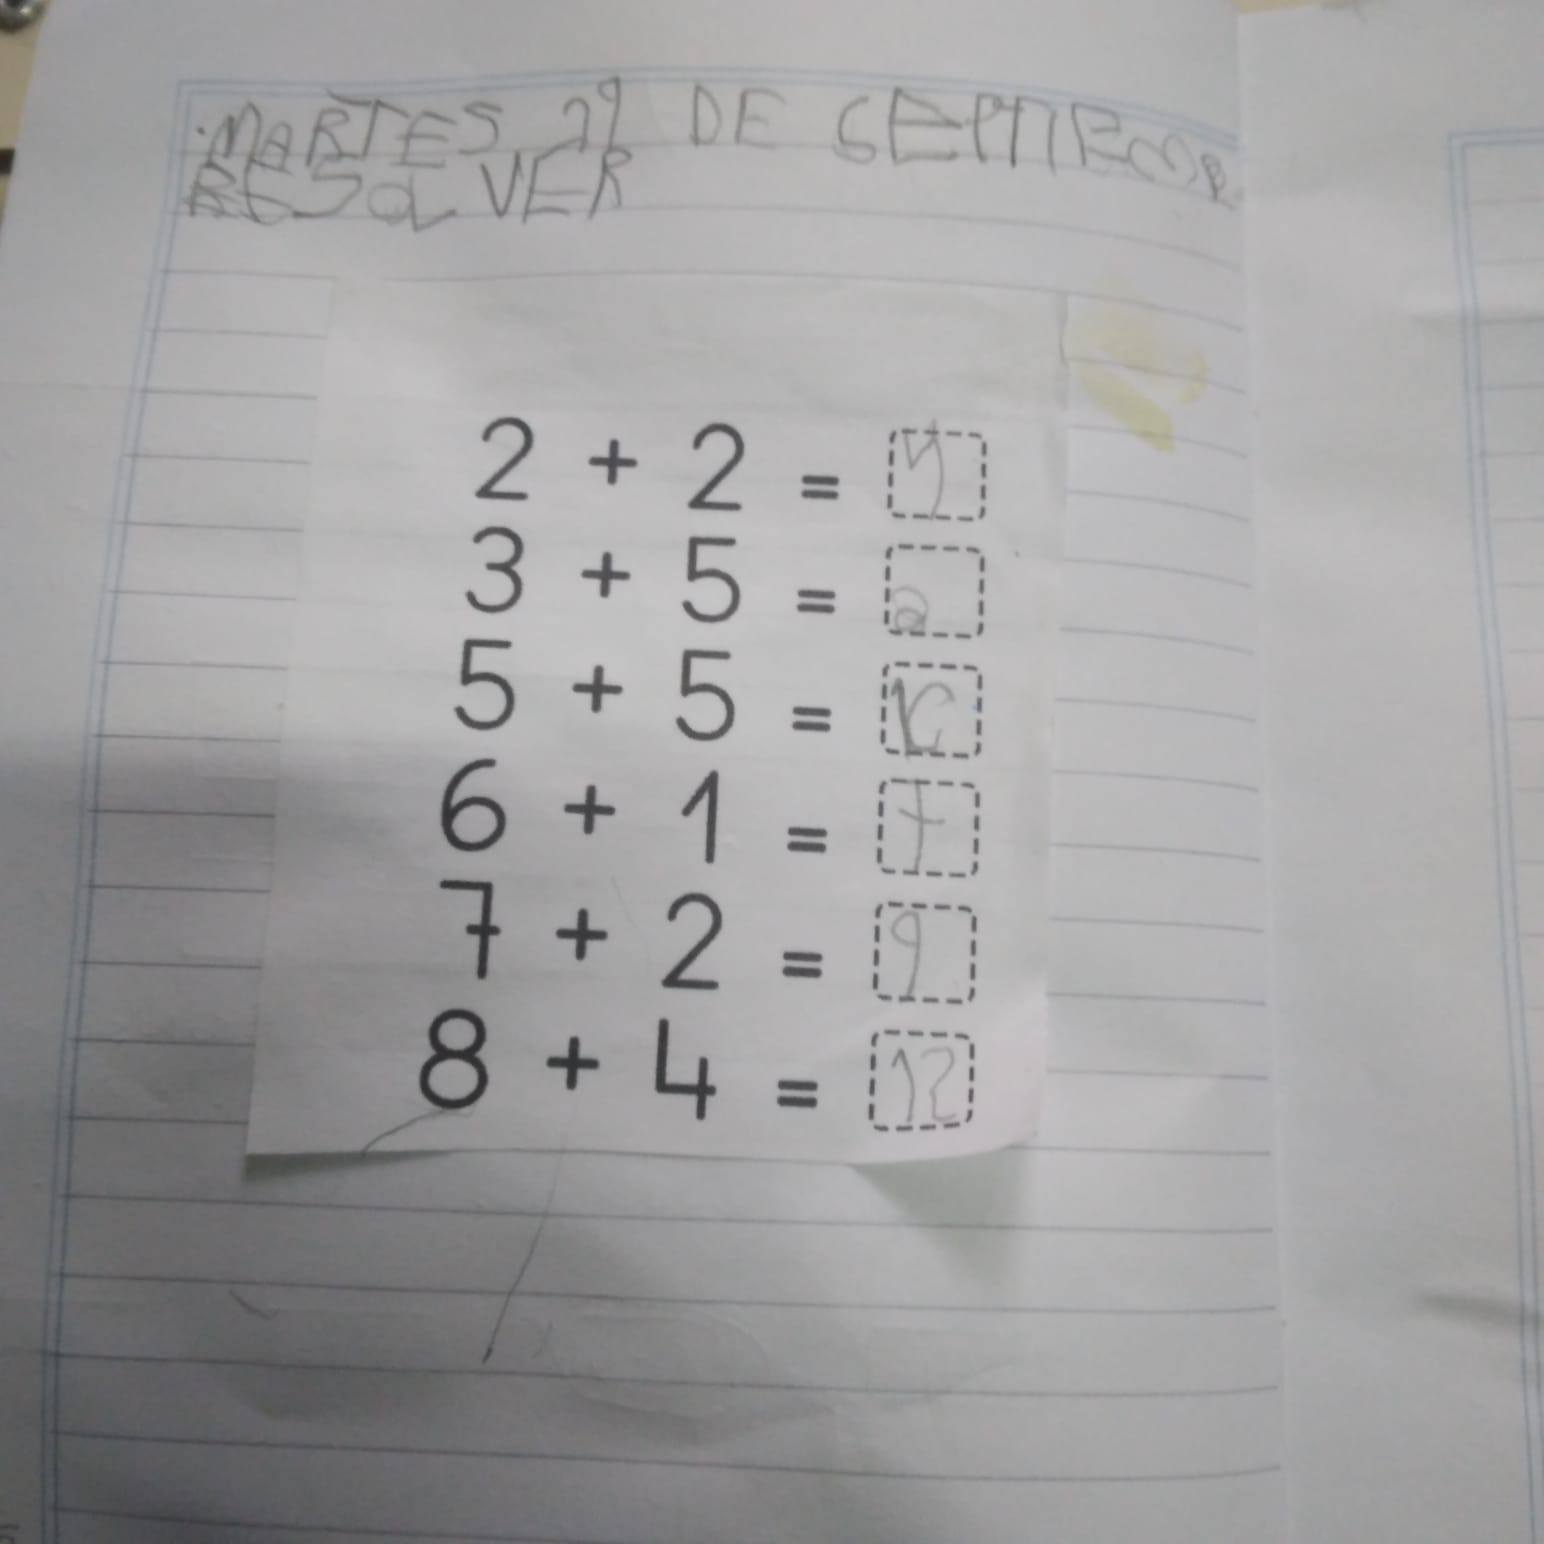 MARTES 29 DE SEPTIEMBR
RESOLVER
2 + 2 = 4
3 + 5 =
5 + 5 = 10
6 + 1 = 7
7 + 2 = 9
8 + 4 = 12